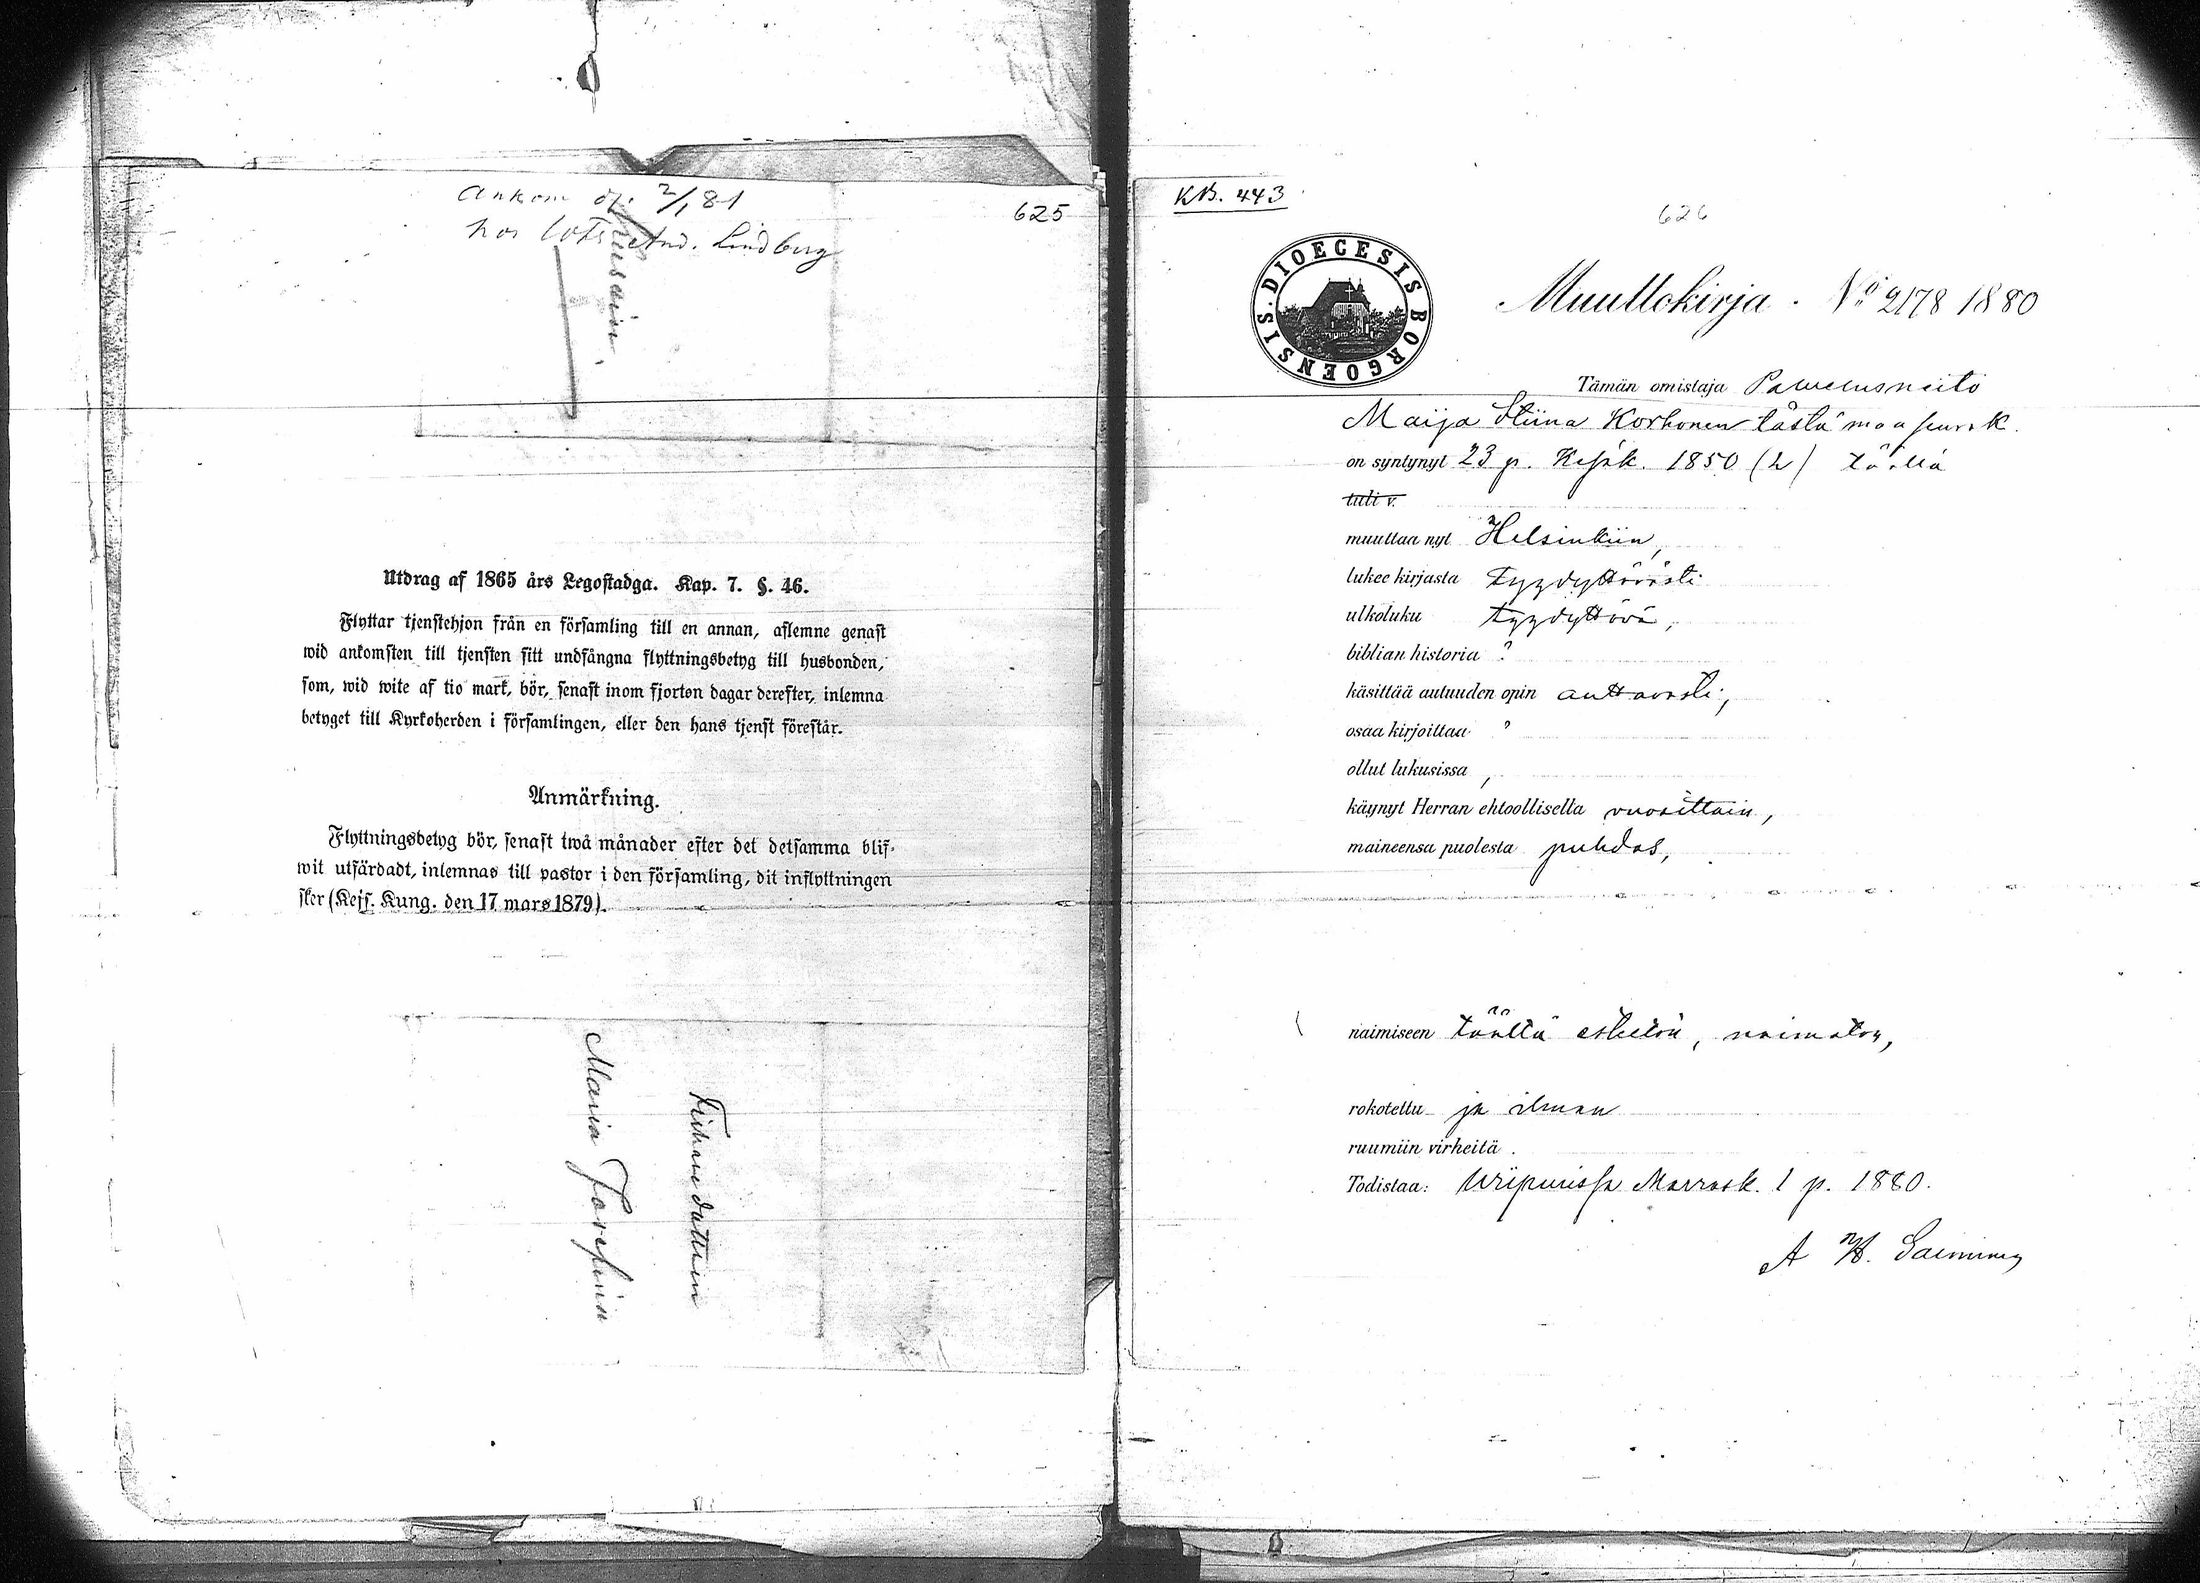 Ankom d. 2/1 81
hos Lots And. Lindberg
625
Utdrag af 1865 års Legostadga. Kap. 7. §. 46.
Flyttar tjenstehjon från en församling till en annan, aflemne genast
wid ankomsten till tjensten sitt undfångna flyttningsbetyg till husbonden,
som, wid wite af tio mark, bör, senast inom fjorton dagar derefter, inlemna
betyget till Kyrkoherden i församlingen, eller den hans tjenst förestår.
Anmärkning.
Flyttningsbetyg bör, senast twå månader efter det detsamma blif-
wit utfärdadt, inlemnas till pastor i den församling, dit inflyttningen
sker (Kejs. Kung. den 17 mars 1879).
Maria Josefina
KB. 443
626
DIOECESIS BORGOENSIS
Muuttokirja. No 2178 1880
Tämän omistaja Palvelusneito
Maija Stiina Korhonen tästä maaseurak.
on syntynyt 23 p. Kesäk. 1850 (L) täällä
tuli v.
muuttaa nyt Helsinkiin,
lukee kirjasta tyydyttävästi
ulkoluku tyydyttävä,
biblian historia ?
käsittää autuuden opin auttavasti,
osaa kirjoittaa ?
ollut lukusissa ,
käynyt Herran ehtoollisella vuosittain,
maineensa puolesta puhdas,
naimiseen täältä esteetön, naimaton,
rokotettu ja ilman
ruumiin virheitä.
Todistaa: Wiipurissa Marrask. 1 p. 1880.
A H.